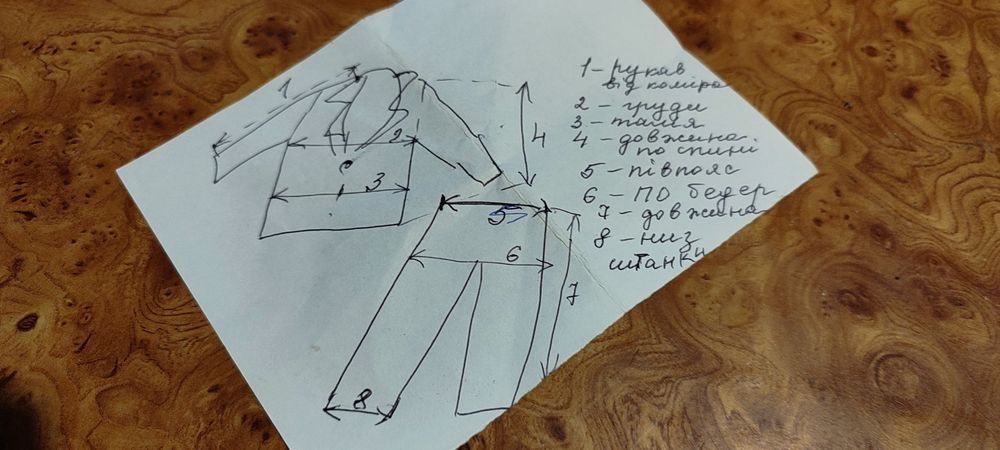 1 - рукав
від коміра
2 - груди
3 - талія
4 - довжина
по спині
5 - півпояс
6 - ПО бедер
7 - довжина
8 - низ
штанки
1
2
3
4
5
6
7
8